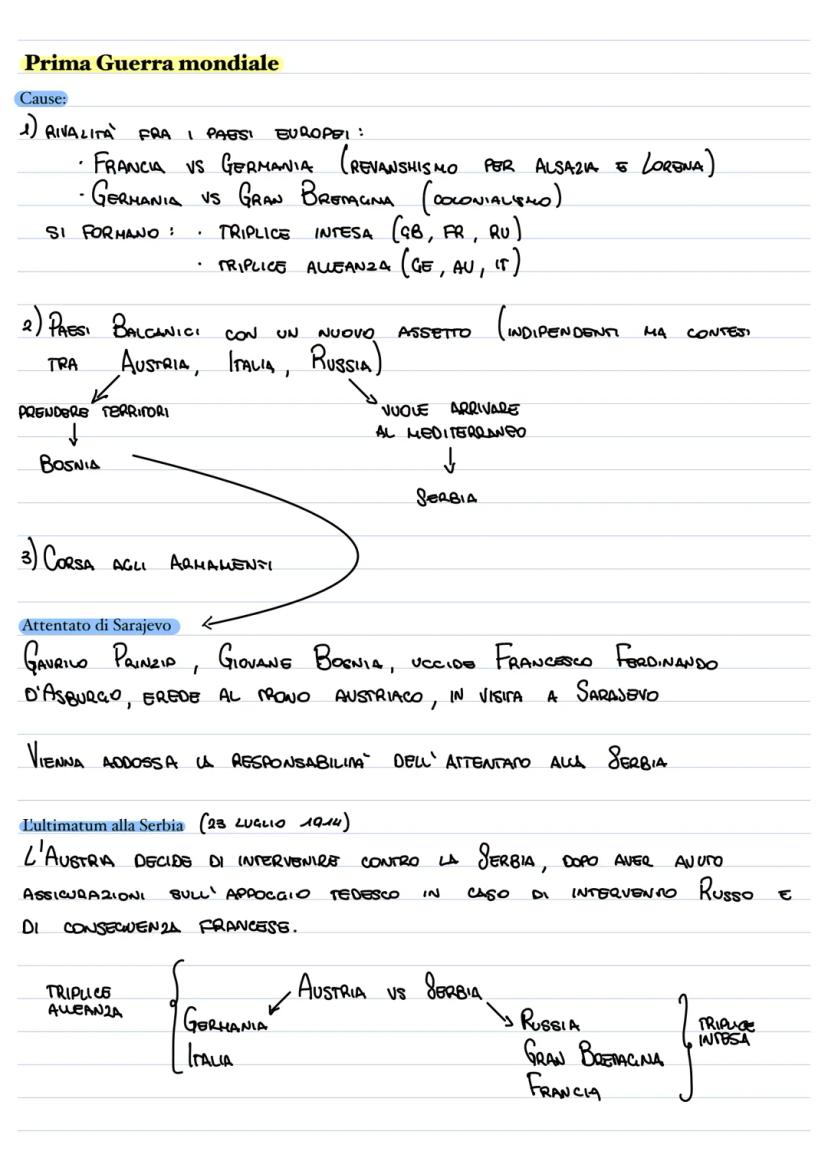 Prima Guerra mondiale
Cause:
1) RIVALITÀ FRA I PAESI EUROPEI:
· FRANCIA VS GERMANIA (REVANSHISMO PER ALSAZIA E LORENA)
· GERMANIA VS GRAN BRETAGNA (COLONIALISMO)
SI FORMANO: · TRIPLICE INTESA (GB, FR, RU)
· TRIPLICE ALLEANZA (GE, AU, IT)
2) PAESI BALCANICI CON UN NUOVO ASSETTO (INDIPENDENTI MA CONTESI
TRA AUSTRIA, ITALIA, RUSSIA)
PRENDERE TERRITORI
VUOLE ARRIVARE
AL MEDITERRANEO
BOSNIA
SERBIA
3) CORSA AGLI ARMAMENTI
Attentato di Sarajevo
GAVRILO PRINZIP, GIOVANE BOSNIA, UCCIDE FRANCESCO FERDINANDO
D'ASBURGO, EREDE AL TRONO AUSTRIACO, IN VISITA A SARAJEVO
VIENNA ADDOSSA LA RESPONSABILITÀ DELL'ATTENTATO ALLA SERBIA
L'ultimatum alla Serbia (23 LUGLIO 1914)
L'AUSTRIA DECIDE DI INTERVENIRE CONTRO LA SERBIA, DOPO AVER AVUTO
ASSICURAZIONI SULL'APPOGGIO TEDESCO IN CASO DI INTERVENTO RUSSO E
DI CONSEGUENZA FRANCESE.
AUSTRIA VS SERBIA
TRIPLICE
ALLEANZA
GERMANIA
ITALIA
RUSSIA
GRAN BRETAGNA
FRANCIA
TRIPLICE
INTESA